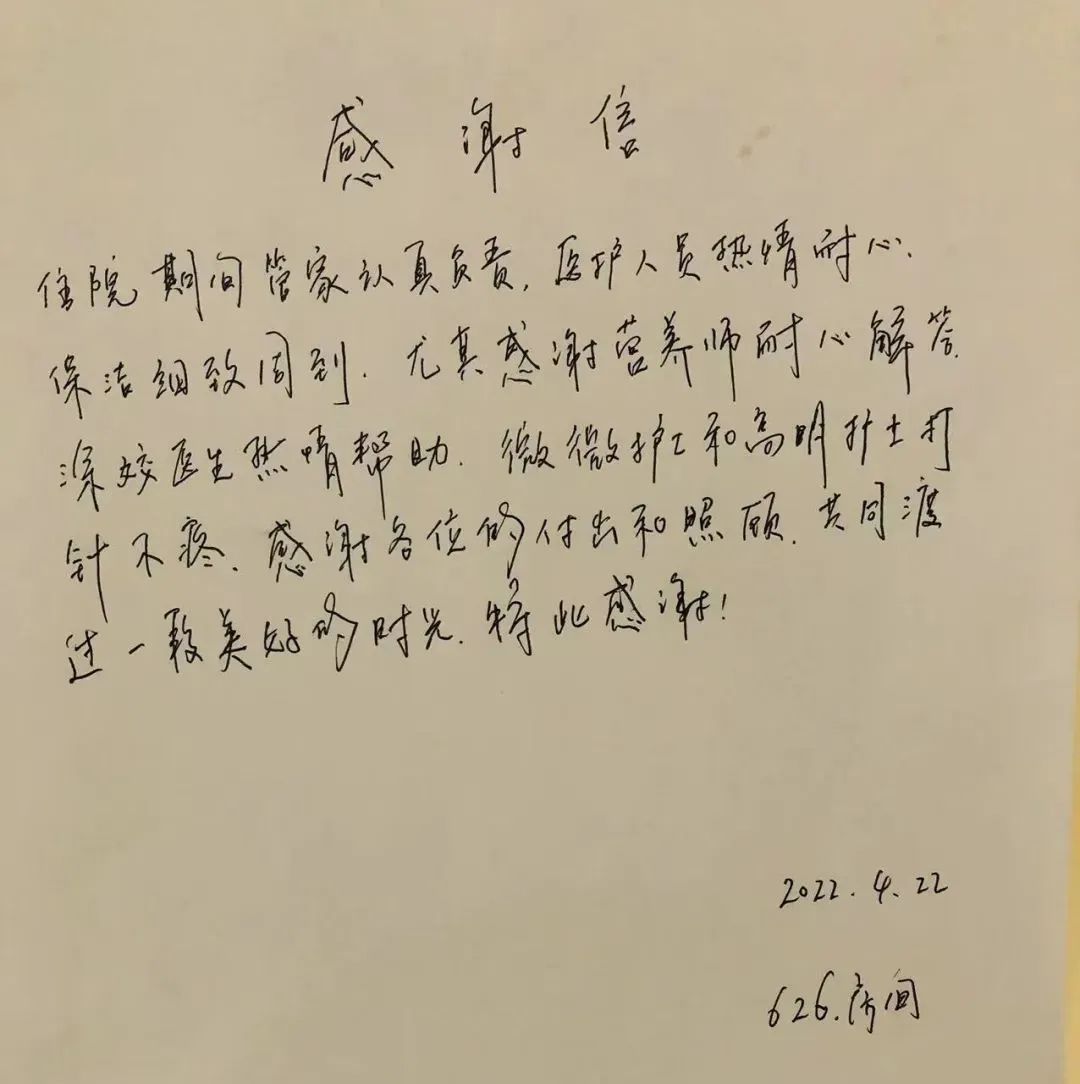 感谢信
住院期间管家认真负责,医护人员热情耐心、
保洁细致周到. 尤其感谢营养师耐心解答.
姣医生热情帮助. 微微护士和高明护士打
针不疼、感谢各位的付出和照顾、共同渡
过一段美好的时光.特此感谢!
2022.4.22
626.房间